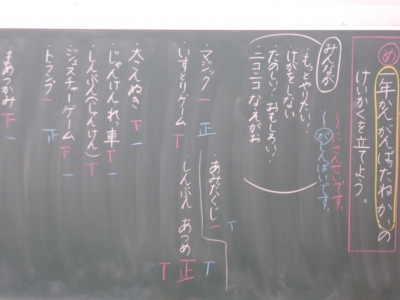 め
一年かん、がんばったね、かいの
けいかくを立てよう。
～にさんせいです。
～がしんぱいです。
みんなが
・もっとやりたい!
・けがをしない
・たのしい!おもしろい!
・ニコニコなえがお
・マジック 一 正
・いすとりゲーム 下 一
・あみだくじ 一 T
・しんぶんあつめ T 正 T
・太こぬき 下 一
・じゃんけんれっ車 下 T
・しんぶん(しんけん) T
・ジェスチャーゲーム 下 一
・トランプ 下
まめつかみ 下 一